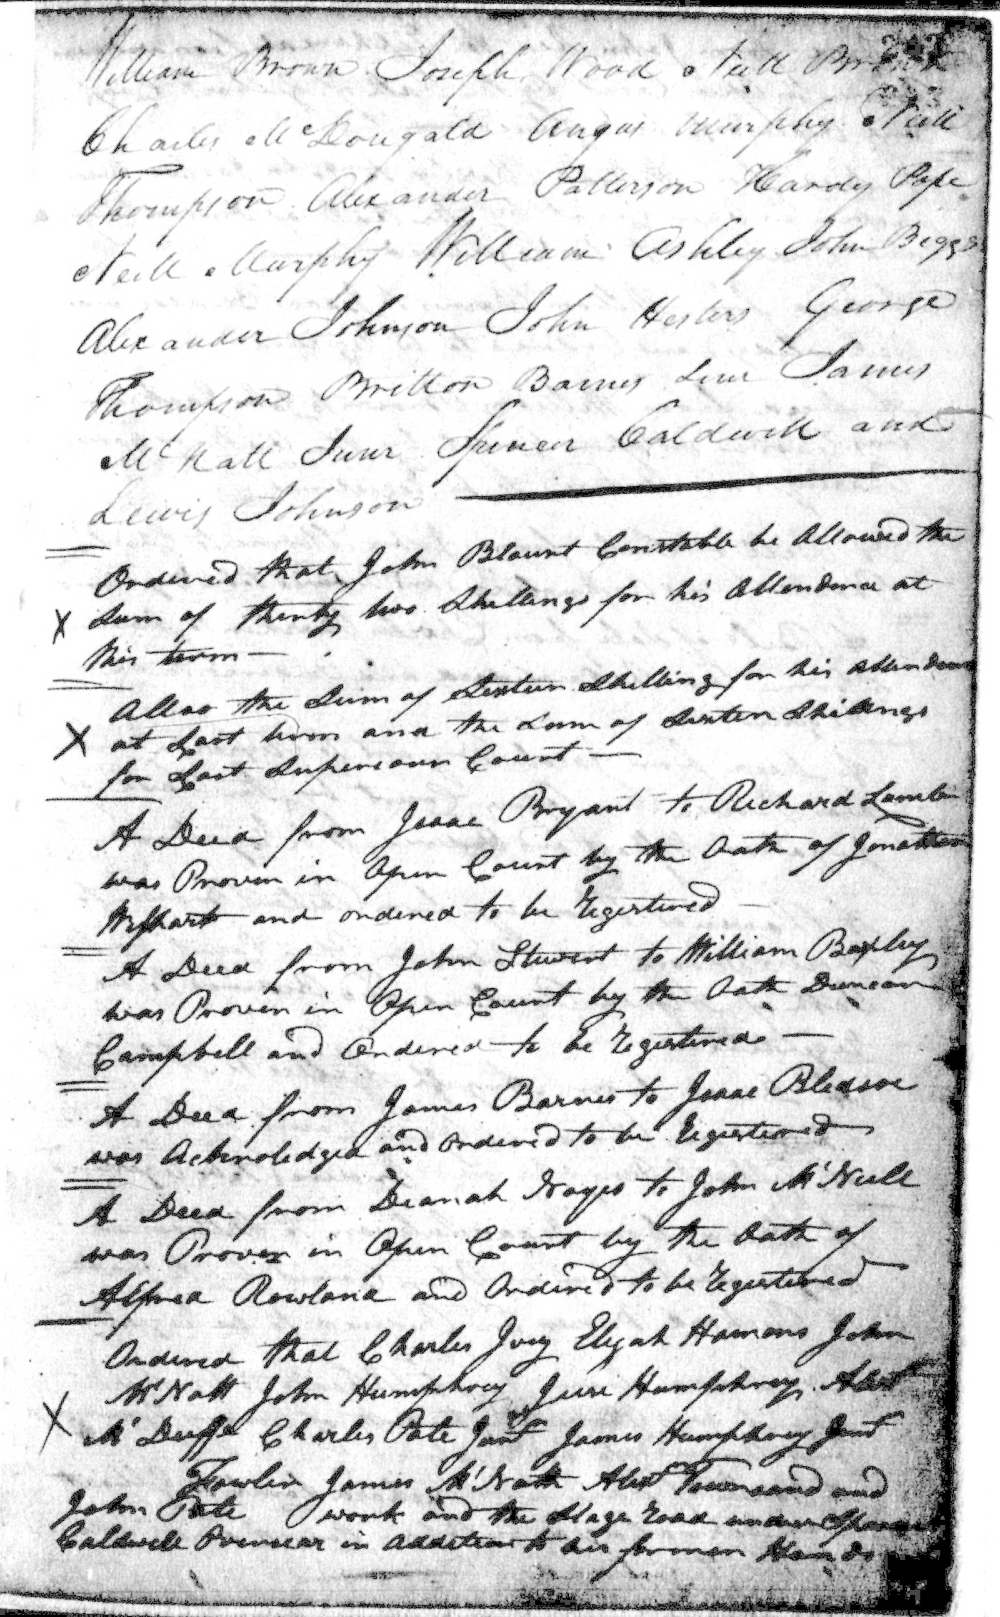 William Brown Joseph Wood Neill Brown
Charles McDougald Angus Murphy Neill
Thompson Alexander Patterson Hardy Pope
Neill Murphy William Ashley John Beggs
Alexander Johnson John Hesters George
Thompson Britton Barnes Senr James
McNatt Junr Spencer Caldwell and
Lewis Johnson
Ordered that John Blount Constable be Allowed the
Sum of thirty two Shillings for his Attendence at
this term
Allso the Sum of Sixteen Shilling for his attendence
at Last term and the Sum of Sixteen Shillings
for Last Superiour Court
A Deed from Isaac Bryant to Richard Lamb
was Proven in Open Court by the Oath of Jonathan
Wishart and ordered to be Registered
A Deed from John Stewart to William Baxley
was Proven in Open Court by the Oath Duncan
Campbell and Ordered to be Registered
A Deed from James Barnes to Isaac Bledsoe
was Acknoledged and ordered to be Registered
A Deed from Dianah Noyes to John McNeill
was Proven in Open Court by the Oath of
Alfred Rowland and Ordered to be Registered
Ordered that Charles Ivey Elijah Hamons John
McNatt John Humphrey Jesse Humphrey Alexr
McDuffe Charles Pate Junr James Humphrey Junr
Fowler James McNatt Alexr Townsand and
John Pate work and the Stage road under Spencer
Caldwell Overseer in addition to his former Hands